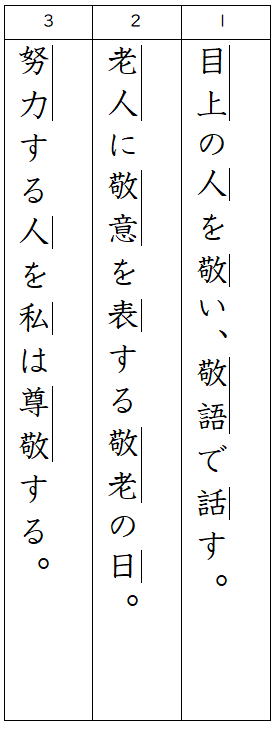 1
目上の人を敬い、敬語で話す。
2
老人に敬意を表する敬老の日。
3
努力する人を私は尊敬する。